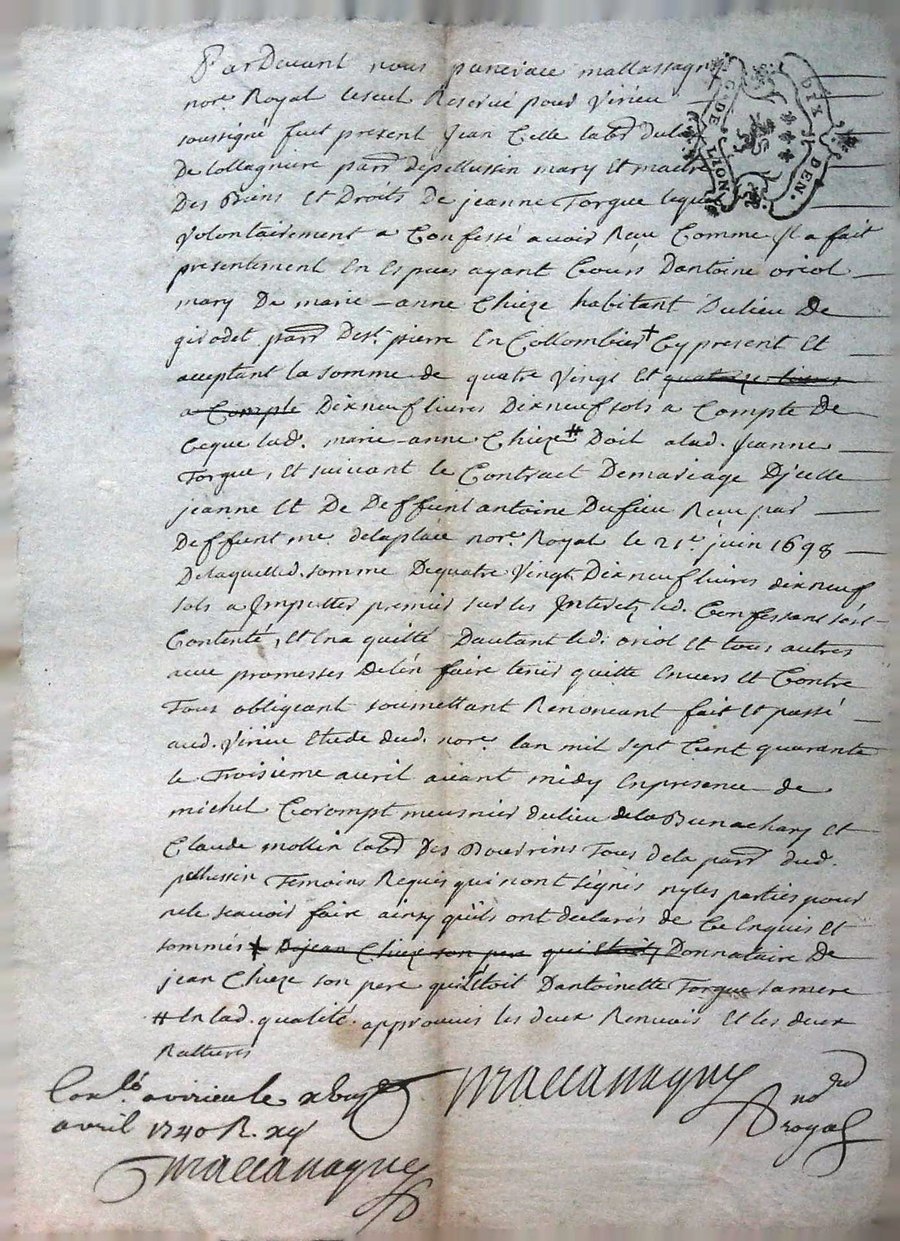 ParDevant nous pancrace mallassagny
nore. Royal Leseul Reservé pour Virieu
soussigné fut present Jean Celle labr. dulieu
De Collagniere parr. depellussin mary et maitre
Des Biens et Droits de jeanne Torgue lequel
Volontairement a Confessé avoir Reçu Comme Il a fait
presentement En Especes ayant Cours Dantoine oriol
mary De marie-anne Chieze habitant Dulieu De
girodet parr. De st. pierre En Collombier + Cy present Et
acceptant La somme de quatre Vingt Et quatorze Livres
a Compte Dixneuf livres Dixneuf sols a Compte De
Ceque lad. marie-anne Chieze # Doit a lad. Jeanne
Torgue, Et suivant le Contract De mariage D'jcelle
jeanne Et De Deffunt antoine Dufieu Reçu par
Deffunt me. delaplace nore. Royal le 21e. juin 1698
De laquelled. somme De quatre Vingt Dixneuf livres dixneuf
sols a Imputter premier sur les Interetz led. Confessant sest
Contenté, Et Ena quitté Dautant led. oriol Et tous autres
avec promesses Delen faire tenir quitte Envers Et Contre
Tous obligeant soumettant Renoncant fait Et passé
aud. Virieu Etude dud. nore. Lan mil sept Cent quarante
le Troisieme avril avant midy En presence de
michel Corompt meusnier du lieu de la Et
Claude mollin labr. Des Tous dela parr. dud.
pellussin Temoins Requis qui nont signés ny les parties pour
nele scavoir faire ainsy qu'ils ont declarés de Ce Enquis Et
sommés + De jean Chieze son pere qui Etoit Donnataire De
jean Chieze son pere qui L'Etoit Dantoinette Torgue sa mere
# En lad. qualité. approuvés les deux Renvois Et les deux
Rattures
Mallassagny
nore
royal
Conlé. a virieu le
avril 1740 R.
Mallassagny
G. DE LION
DIX DEN.